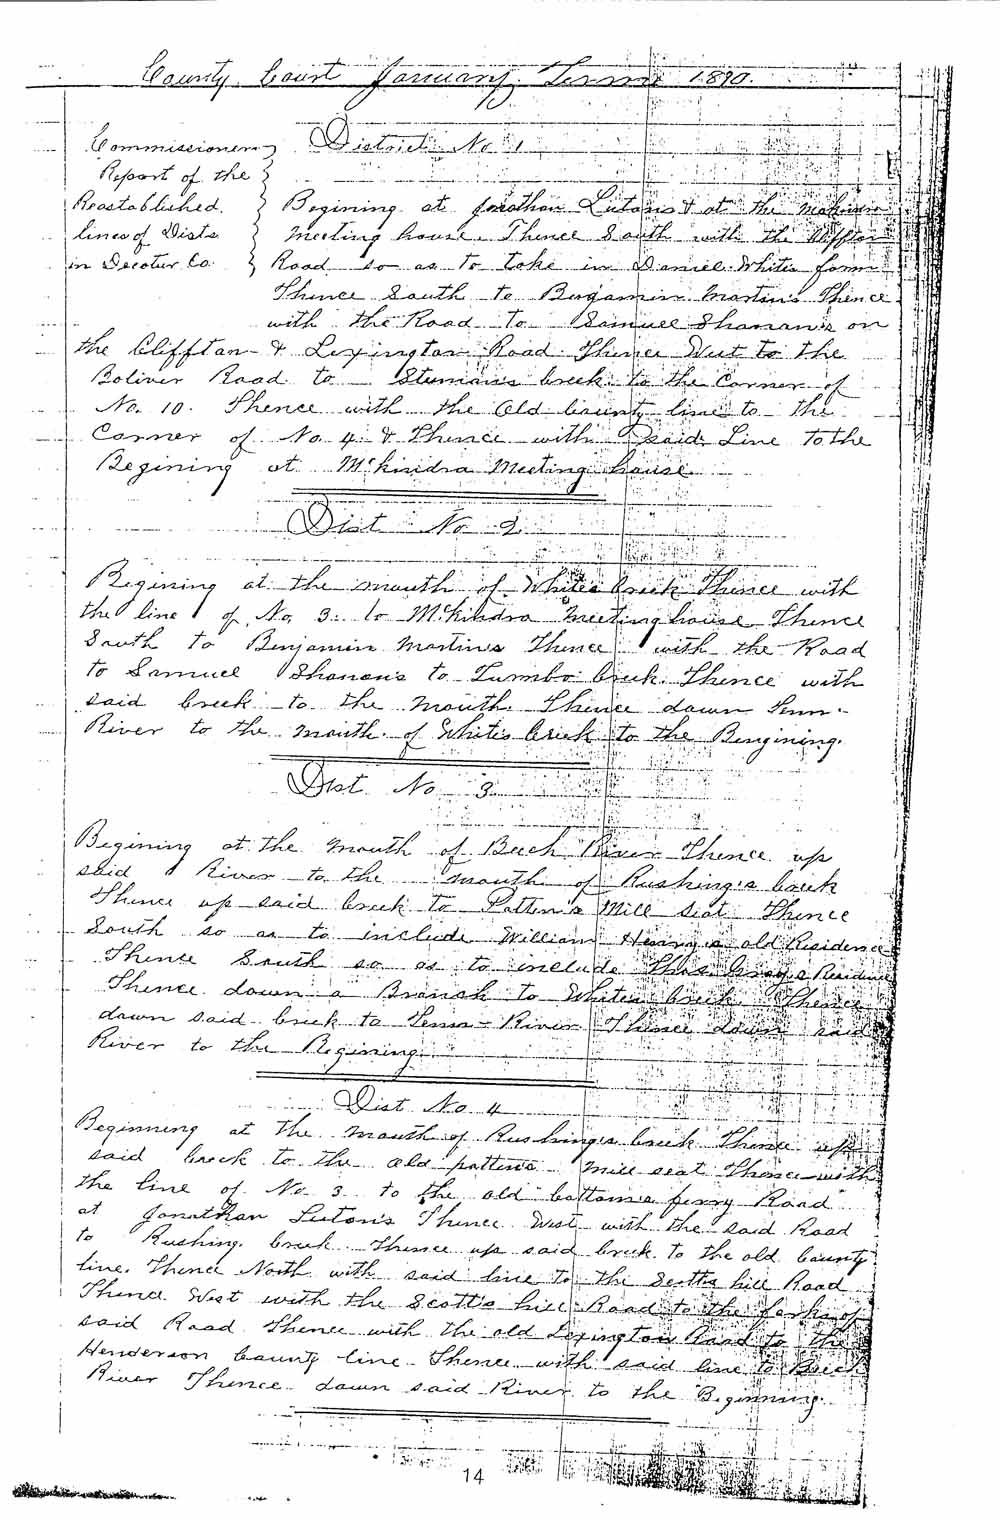 County Court January Term 1890.
Commissioners
Report of the
Reastablished
lines of Dists
in Decatur Co.
District No 1
Begining at Jonathan Lutons & at the
meeting house. Thence South with the Cliffton
Road so as to take in Daniel Whites farm
Thence South to Benjamin Martin's Thence
with the Road to Samuel Shanan's on
the Cliffton & Lexington Road Thence West to the
Boliver Road to creek to the Corner of
No. 10. Thence with the Old County line to the
Corner of No 4 & Thence with said Line to the
Begining at McKindra Meeting house
Dist No 2
Begining at the mouth of Whites Creek Thence with
the line of No. 3. to McKindra Meeting house Thence
South to Benjamin Martins Thence with the Road
to Samuel Shanan's to Turnbo Creek. Thence with
said Creek to the mouth. Thence down Tenn-
River to the mouth of White's Creek to the Bengining.
Dist No 3
Begining at the Mouth of Beech River Thence up
said River to the mouth of Rushing's Creek
Thence up said Creek to Patten's Mill seat Thence
South so as to include William Henry's old Residence
Thence South so as to include Thos. Gray's Residence
Thence down a Branch to Whites Creek. Thence
down said creek to Tenn- River Thence down said
River to the Begining
Dist No 4
Beginning at the mouth of Rushing's Creek Thence up
said Creek to the old patten's mill seat Thence with
the line of No. 3 to the old battom's ferry Road
at Jonathan Luton's Thence West with the said Road
to Rushing Creek Thence up said Creek to the old County
line. Thence North with said line to the Scotts hill Road
Thence West with the Scott's hill Road to the forks of
said Road Thence with the old Lexington Road to the
Henderson County line Thence with said line to Beech
River Thence down said River to the Beginning.
14